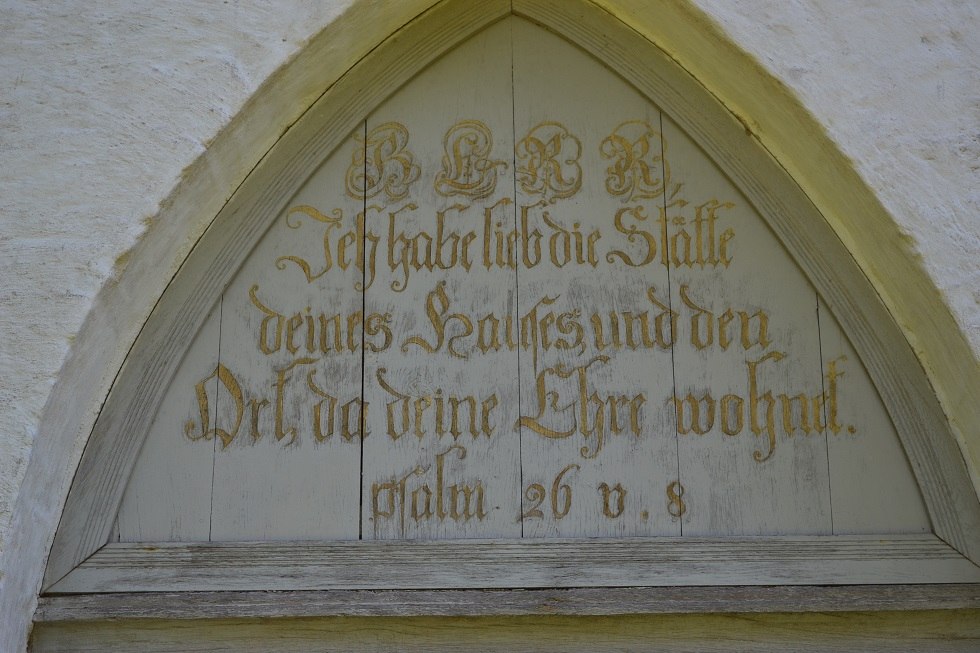 HERR,
Ich habe lieb die Stätte
deines Hauses und den
Ort, da deine Ehre wohnet.
psalm 26 v. 8